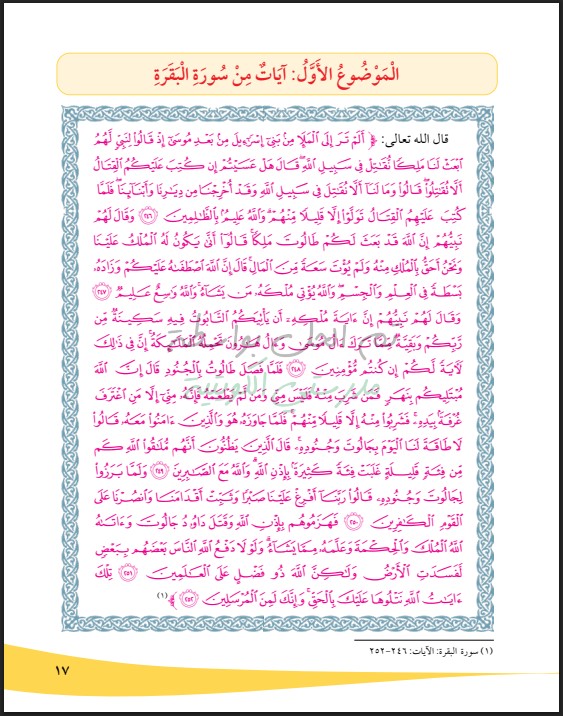 الْمَوْضُوعُ الأَوَّلُ: آيَاتٌ مِنْ سُورَةِ الْبَقَرَةِ
قال الله تعالى: ﴿ أَلَمْ تَرَ إِلَى ٱلْمَلَإِ مِنۢ بَنِىٓ إِسْرَٰٓءِيلَ مِنۢ بَعْدِ مُوسَىٰٓ إِذْ قَالُوا۟ لِنَبِىٍّ لَّهُمُ
ٱبْعَثْ لَنَا مَلِكًا نُّقَٰتِلْ فِى سَبِيلِ ٱللَّهِ ۖ قَالَ هَلْ عَسَيْتُمْ إِن كُتِبَ عَلَيْكُمُ ٱلْقِتَالُ
أَلَّا تُقَٰتِلُوا۟ ۖ قَالُوا۟ وَمَا لَنَآ أَلَّا نُقَٰتِلَ فِى سَبِيلِ ٱللَّهِ وَقَدْ أُخْرِجْنَا مِن دِيَٰرِنَا وَأَبْنَآئِنَا ۖ فَلَمَّا
كُتِبَ عَلَيْهِمُ ٱلْقِتَالُ تَوَلَّوْا۟ إِلَّا قَلِيلًا مِّنْهُمْ ۗ وَٱللَّهُ عَلِيمٌۢ بِٱلظَّٰلِمِينَ ٢٤٦ وَقَالَ لَهُمْ
نَبِيُّهُمْ إِنَّ ٱللَّهَ قَدْ بَعَثَ لَكُمْ طَالُوتَ مَلِكًا ۚ قَالُوٓا۟ أَنَّىٰ يَكُونُ لَهُ ٱلْمُلْكُ عَلَيْنَا
وَنَحْنُ أَحَقُّ بِٱلْمُلْكِ مِنْهُ وَلَمْ يُؤْتَ سَعَةً مِّنَ ٱلْمَالِ ۚ قَالَ إِنَّ ٱللَّهَ ٱصْطَفَىٰهُ عَلَيْكُمْ وَزَادَهُۥ
بَسْطَةً فِى ٱلْعِلْمِ وَٱلْجِسْمِ ۖ وَٱللَّهُ يُؤْتِى مُلْكَهُۥ مَن يَشَآءُ ۚ وَٱللَّهُ وَٰسِعٌ عَلِيمٌ ٢٤٧
وَقَالَ لَهُمْ نَبِيُّهُمْ إِنَّ ءَايَةَ مُلْكِهِۦٓ أَن يَأْتِيَكُمُ ٱلتَّابُوتُ فِيهِ سَكِينَةٌ مِّن
رَّبِّكُمْ وَبَقِيَّةٌ مِّمَّا تَرَكَ ءَالُ مُوسَىٰ وَءَالُ هَٰرُونَ تَحْمِلُهُ ٱلْمَلَٰٓئِكَةُ ۚ إِنَّ فِى ذَٰلِكَ
لَءَايَةً لَّكُمْ إِن كُنتُم مُّؤْمِنِينَ ٢٤٨ فَلَمَّا فَصَلَ طَالُوتُ بِٱلْجُنُودِ قَالَ إِنَّ ٱللَّهَ
مُبْتَلِيكُم بِنَهَرٍ فَمَن شَرِبَ مِنْهُ فَلَيْسَ مِنِّى وَمَن لَّمْ يَطْعَمْهُ فَإِنَّهُۥ مِنِّىٓ إِلَّا مَنِ ٱغْتَرَفَ
غُرْفَةًۢ بِيَدِهِۦ ۚ فَشَرِبُوا۟ مِنْهُ إِلَّا قَلِيلًا مِّنْهُمْ ۚ فَلَمَّا جَاوَزَهُۥ هُوَ وَٱلَّذِينَ ءَامَنُوا۟ مَعَهُۥ قَالُوا۟
لَا طَاقَةَ لَنَا ٱلْيَوْمَ بِجَالُوتَ وَجُنُودِهِۦ ۚ قَالَ ٱلَّذِينَ يَظُنُّونَ أَنَّهُم مُّلَٰقُوا۟ ٱللَّهِ كَم
مِّن فِئَةٍ قَلِيلَةٍ غَلَبَتْ فِئَةً كَثِيرَةًۢ بِإِذْنِ ٱللَّهِ ۗ وَٱللَّهُ مَعَ ٱلصَّٰبِرِينَ ٢٤٩ وَلَمَّا بَرَزُوا۟
لِجَالُوتَ وَجُنُودِهِۦ قَالُوا۟ رَبَّنَآ أَفْرِغْ عَلَيْنَا صَبْرًا وَثَبِّتْ أَقْدَامَنَا وَٱنصُرْنَا عَلَى
ٱلْقَوْمِ ٱلْكَٰفِرِينَ ٢٥٠ فَهَزَمُوهُم بِإِذْنِ ٱللَّهِ وَقَتَلَ دَاوُۥدُ جَالُوتَ وَءَاتَىٰهُ
ٱللَّهُ ٱلْمُلْكَ وَٱلْحِكْمَةَ وَعَلَّمَهُۥ مِمَّا يَشَآءُ ۗ وَلَوْلَا دَفْعُ ٱللَّهِ ٱلنَّاسَ بَعْضَهُم بِبَعْضٍ
لَّفَسَدَتِ ٱلْأَرْضُ وَلَٰكِنَّ ٱللَّهَ ذُو فَضْلٍ عَلَى ٱلْعَٰلَمِينَ ٢٥١ تِلْكَ
ءَايَٰتُ ٱللَّهِ نَتْلُوهَا عَلَيْكَ بِٱلْحَقِّ ۚ وَإِنَّكَ لَمِنَ ٱلْمُرْسَلِينَ ٢٥٢ ﴾ (١)
(١) سورة البقرة: الآيات: ٢٤٦-٢٥٢
١٧